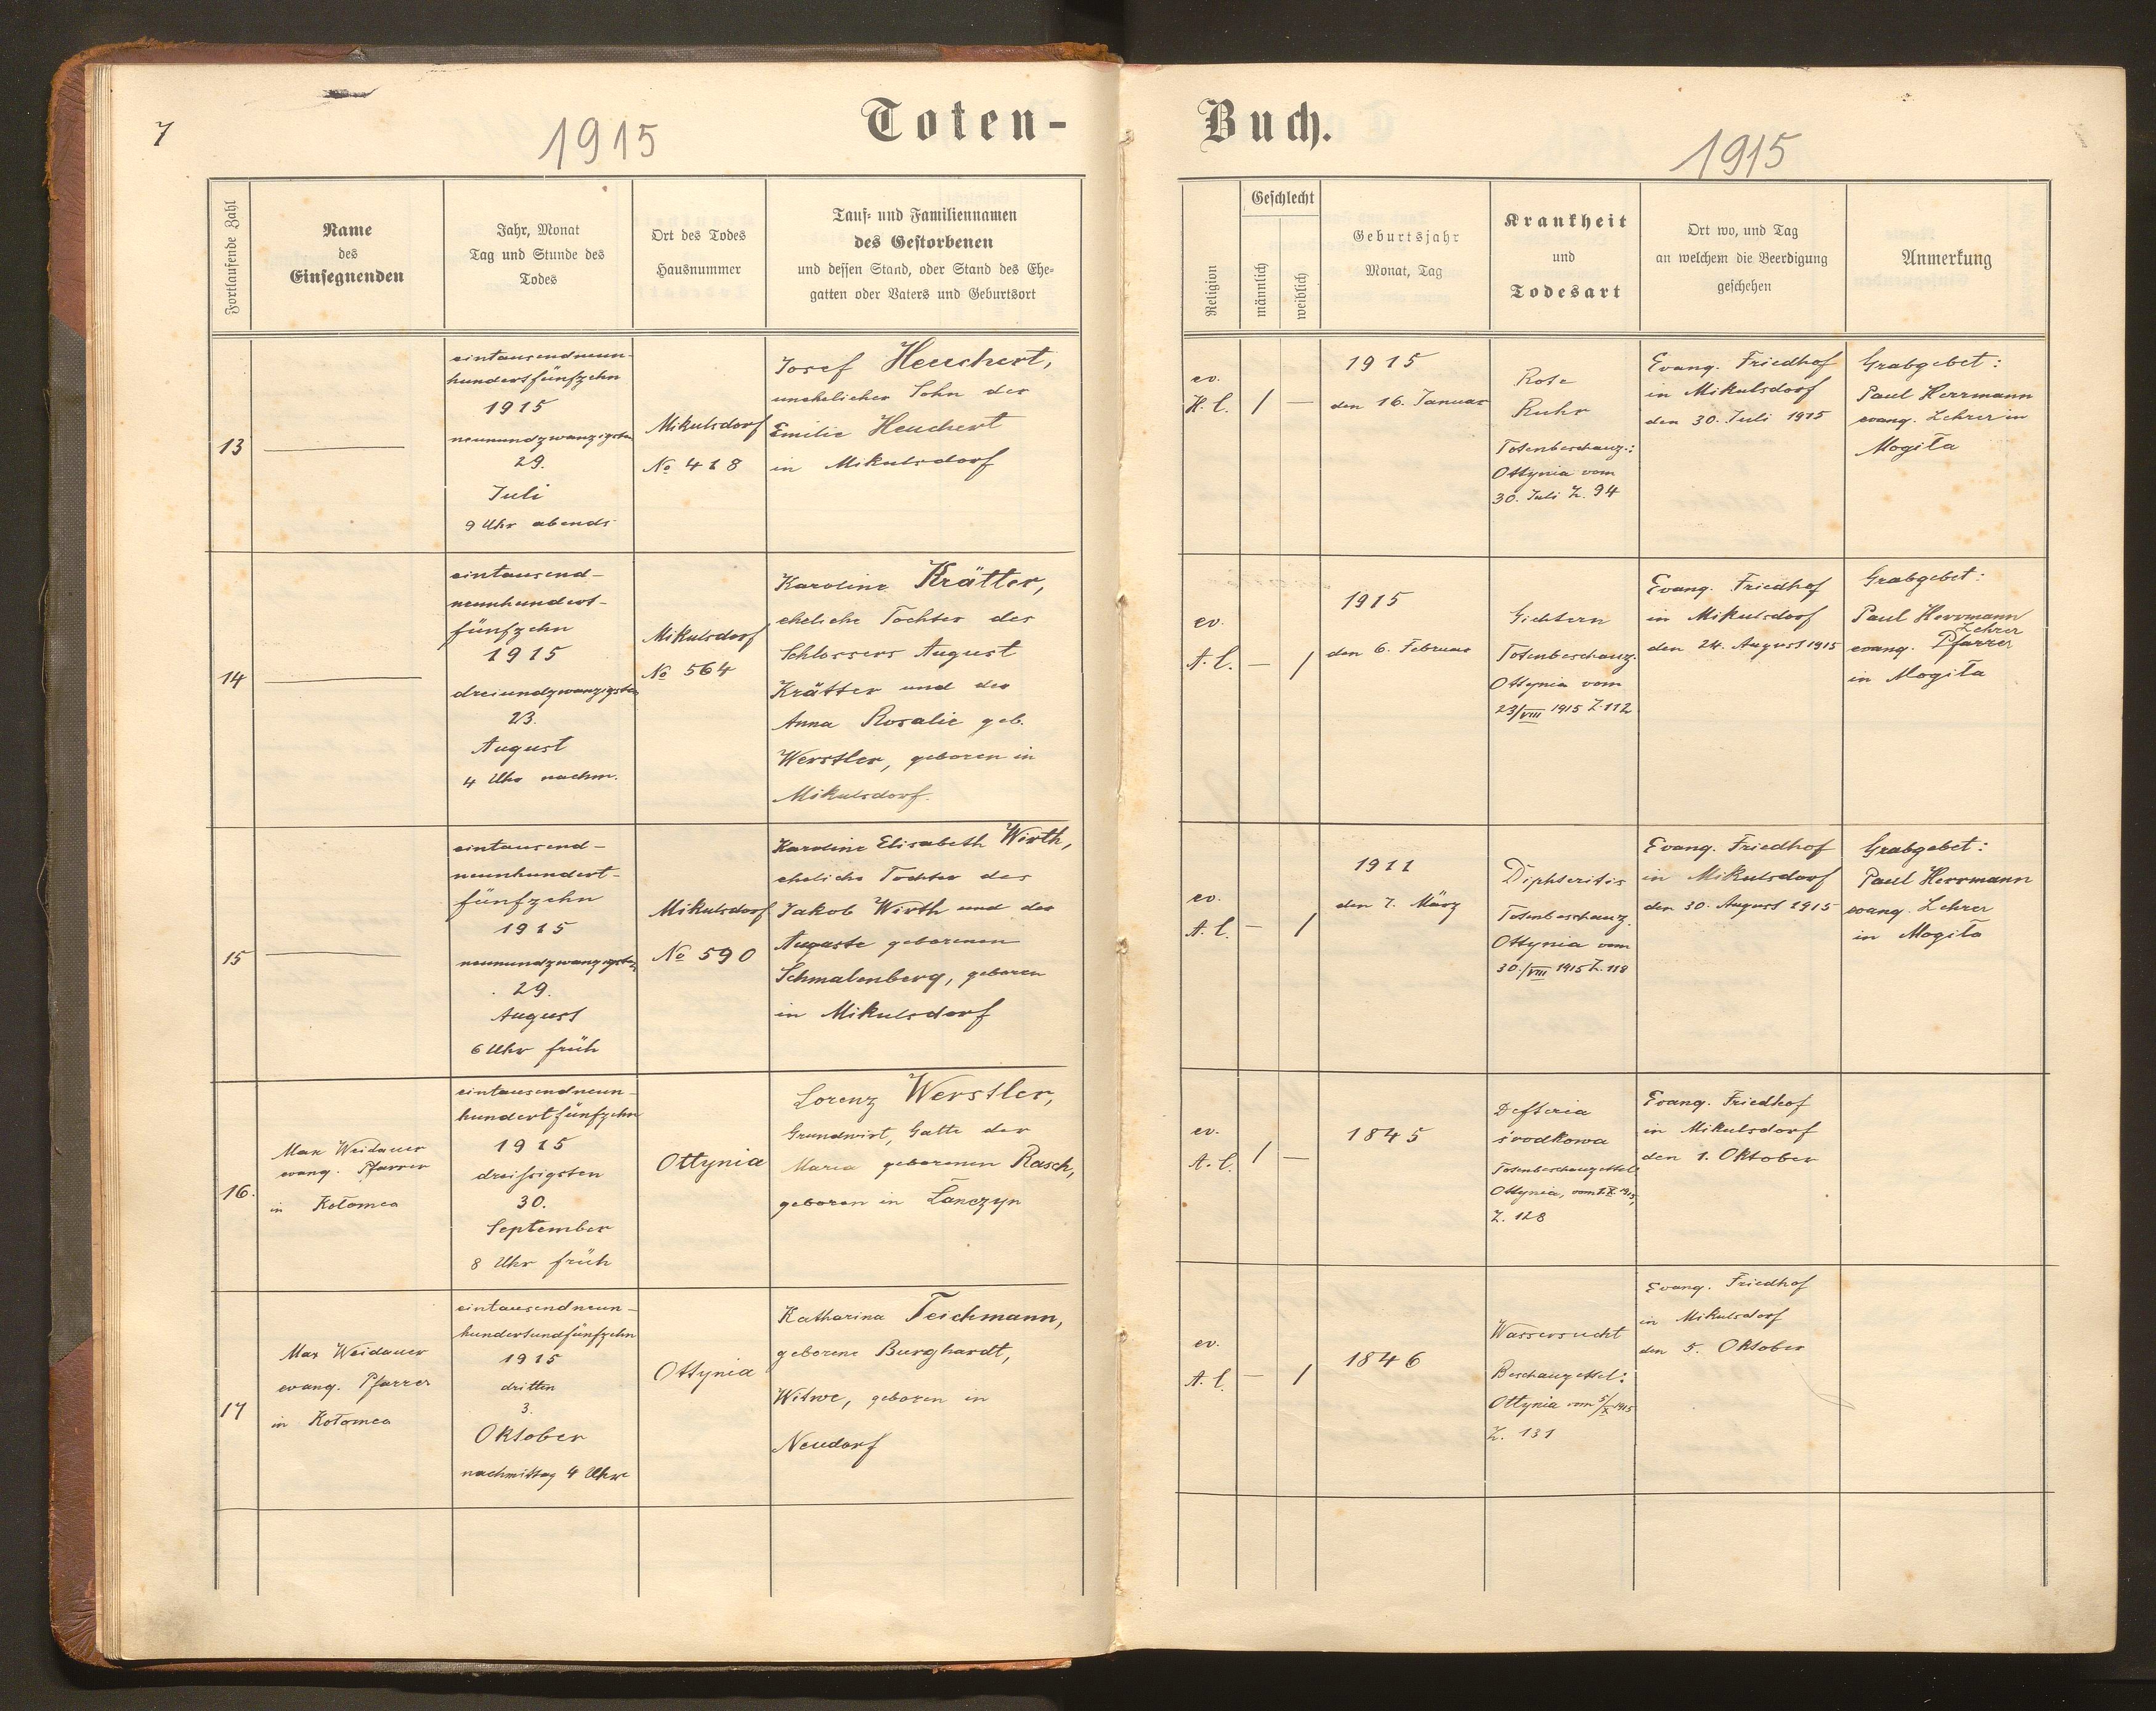 7
1915
Toten-
Buch.
1915
Fortlaufende Zahl
Name
des
Einsegnenden
Jahr, Monat
Tag und Stunde des
Todes
Ort des Todes
Hausnummer
Tauf- und Familiennamen
des Gestorbenen
und dessen Stand, oder Stand des Ehe-
gatten oder Vaters und Geburtsort
Religion
Geschlecht
männlich
weiblich
Geburtsjahr
Monat, Tag
Krankheit
und
Todesart
Ort wo, und Tag
an welchem die Beerdigung
geschehen
Anmerkung
13
eintausendneun-
hundertfünfzehn
1915
neunundzwanzigsten
29.
Juli
9 Uhr abends
Mikulsdorf
No 418
Josef Heuchert,
unehelicher Sohn der
Emilie Heuchert
in Mikulsdorf
ev.
H. C.
/ —
1915
den 16. Januar
Rote
Ruhr
Totenbeschauz.:
Ottynia vom
30. Juli Z. 94
Evang. Friedhof
in Mikulsdorf
den 30. Juli 1915
Grabgebet:
Paul Herrmann
evang. Lehrer in
Mogiła
14
eintausend-
neunhundert-
fünfzehn
1915
dreiundzwanzigsten
23.
August
4 Uhr nachm.
Mikulsdorf
No 564
Karoline Krätter,
eheliche Tochter des
Schlossers August
Krätter und der
Anna Rosalie geb.
Werstler, geboren in
Mikulsdorf.
ev.
A. C.
— /
1915
den 6. Februar
Gichtern
Totenbeschauz.
Ottynia vom
23/VIII 1915 Z. 112
Evang. Friedhof
in Mikulsdorf
den 24. August 1915
Grabgebet:
Paul Herrmann
Lehrer
evang. Pfarrer
in Mogiła
15
eintausend-
neunhundert-
fünfzehn
1915
neunundzwanzigsten
29.
August
6 Uhr früh
Mikulsdorf
No 590
Karoline Elisabeth Wirth,
eheliche Tochter des
Jakob Wirth und der
Auguste geborenen
Schmalenberg, geboren
in Mikulsdorf
ev.
A. C.
— /
1911
den 7. März
Diphteritis
Totenbeschauz.
Ottynia vom
30./VIII 1915 Z. 118
Evang. Friedhof
in Mikulsdorf
den 30. August 1915
Grabgebet:
Paul Herrmann
evang. Lehrer
in Mogiła
16.
Max Weidauer
evang. Pfarrer
in Kołomea
eintausendneun-
hundertfünfzehn
1915
dreißigsten
30.
September
8 Uhr früh
Ottynia
Lorenz Werstler,
Grundwirt, Gatte der
Maria geborenen Rasch,
geboren in Łanczyn
ev.
A. C.
/ —
1845
Defteria
środkowa
Totenbeschauzettel
Ottynia, vom 1. X. 1915,
Z. 128
Evang. Friedhof
in Mikulsdorf
den 1. Oktober
17
Max Weidauer
evang. Pfarrer
in Kołomea
eintausendneun-
hundertundfünfzehn
1915
dritten
3.
Oktober
nachmittag 4 Uhr
Ottynia
Katharina Teichmann,
geborene Burghardt,
Witwe, geboren in
Neudorf
ev.
A. C.
— /
1846
Wassersucht
Beschauzettel:
Ottynia vom 5/X 1915
Z. 131
Evang. Friedhof
in Mikulsdorf
den 5. Oktober